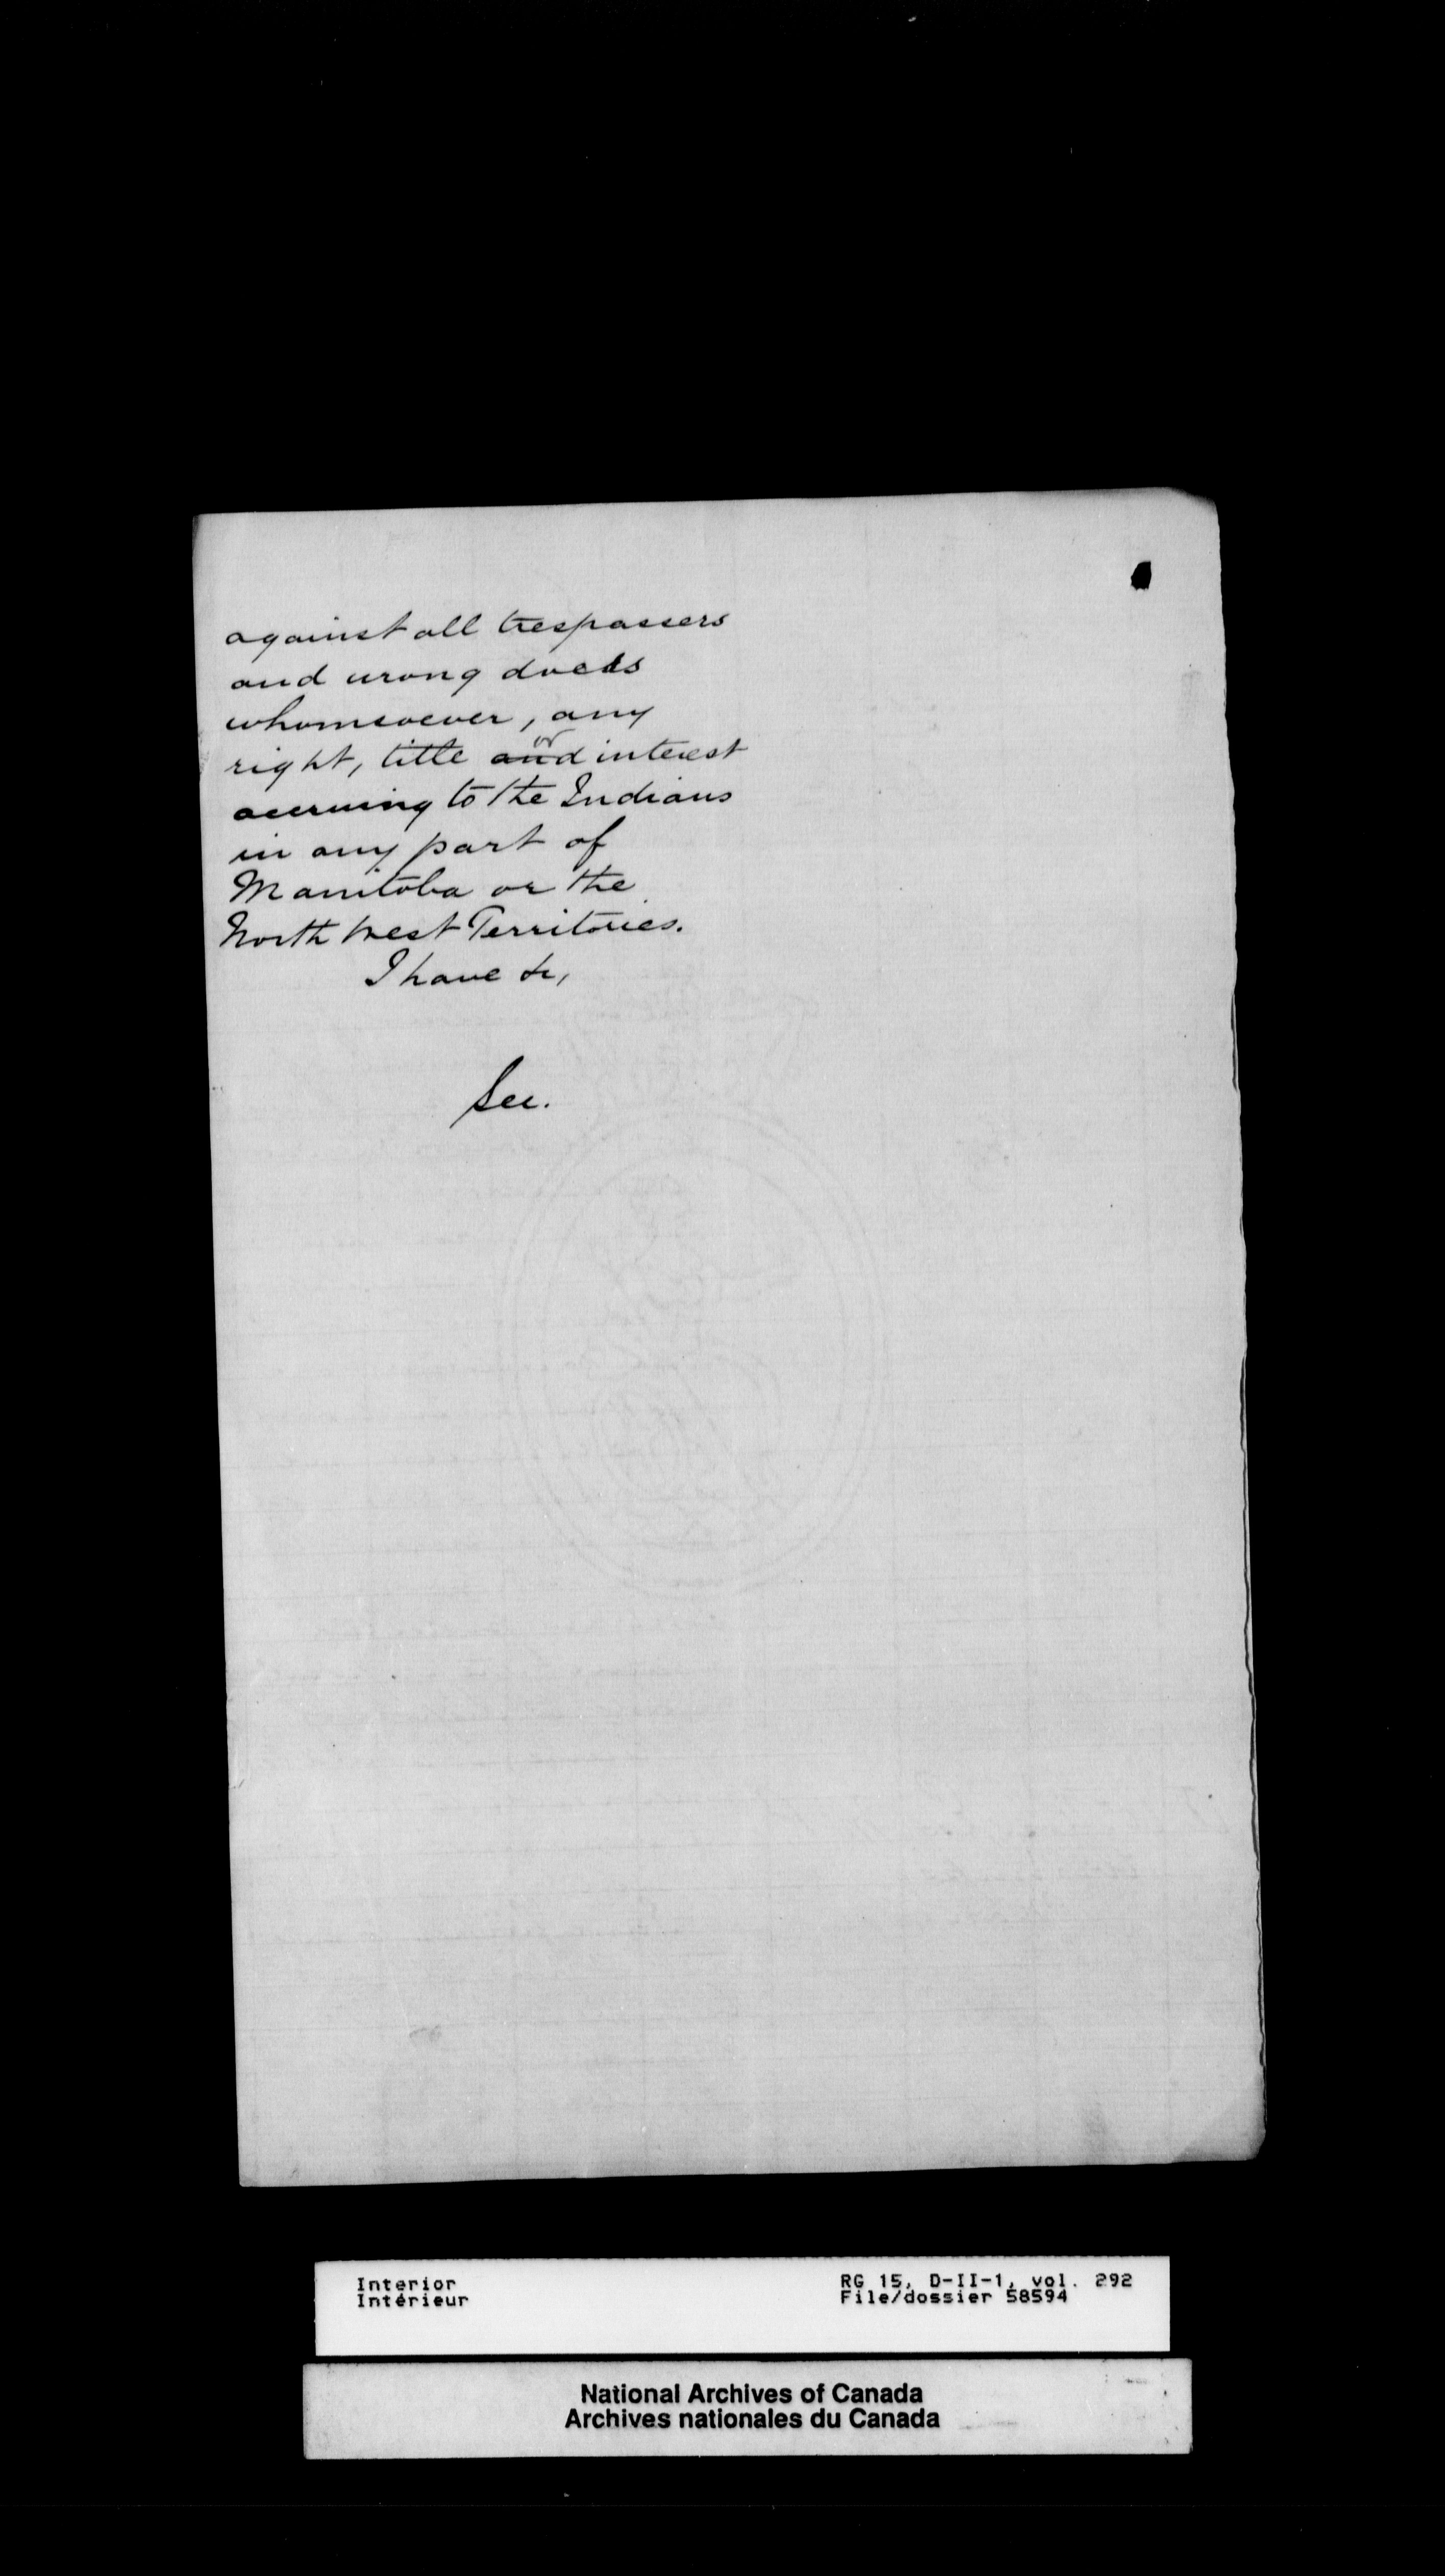 against all trespassers
and wrong doers
whomsoever, any
or
right, title and interest
accruing to the Indians
in any part of
Manitoba or the
North West Territories.
I have &c,
Sec.
Interior
Intérieur
RG 15, D-II-1, vol. 292
File/dossier 58594
National Archives of Canada
Archives nationales du Canada